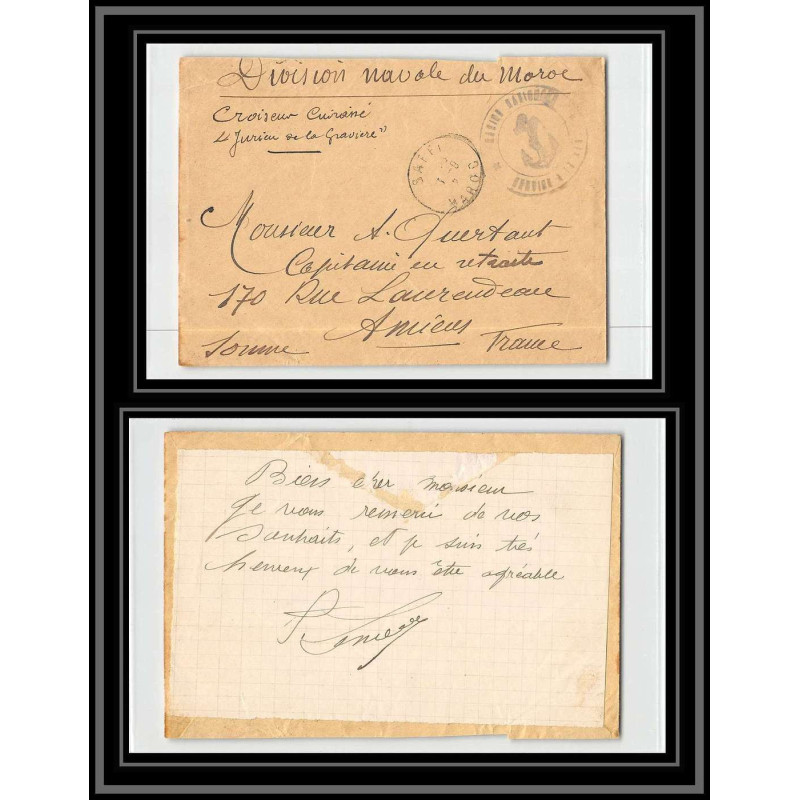 Division navale du Maroc
Croiseur Cuirassé
"Jurien de la Gravière"
SAFFI
MAROC
Monsieur A. Quertant
Capitaine en retraite
170 Rue Laurendeau
Amiens
Somme France
Bien cher monsieur
Je vous remerci de vos
Souhaits, et je suis très
heureux de vous être agréable